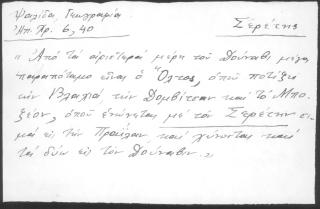 Ψαλίδα, Γεωγραφία.
Ἠπ. Χρ. 6, 40
Σερέτης
"Ἀπὸ τὰ ἀριστερὰ μέρη τοῦ Δούναβι μεγα
παραπόταμο εἶναι ὁ Ὄλτος, ὁποὺ ποτίζει
τὴν Βλαχιὰ, τὴν Δομβίτσαν καὶ τὸ Μπο
ζέον, ὁποὺ ἑνώνεται μὲ τὸν Σερέτην σι
μὰ εἰς τὴν Πραΐλαν, καὶ χύνονται καὶ
τὰ δύω εἰς τὸν Δούναβιν."